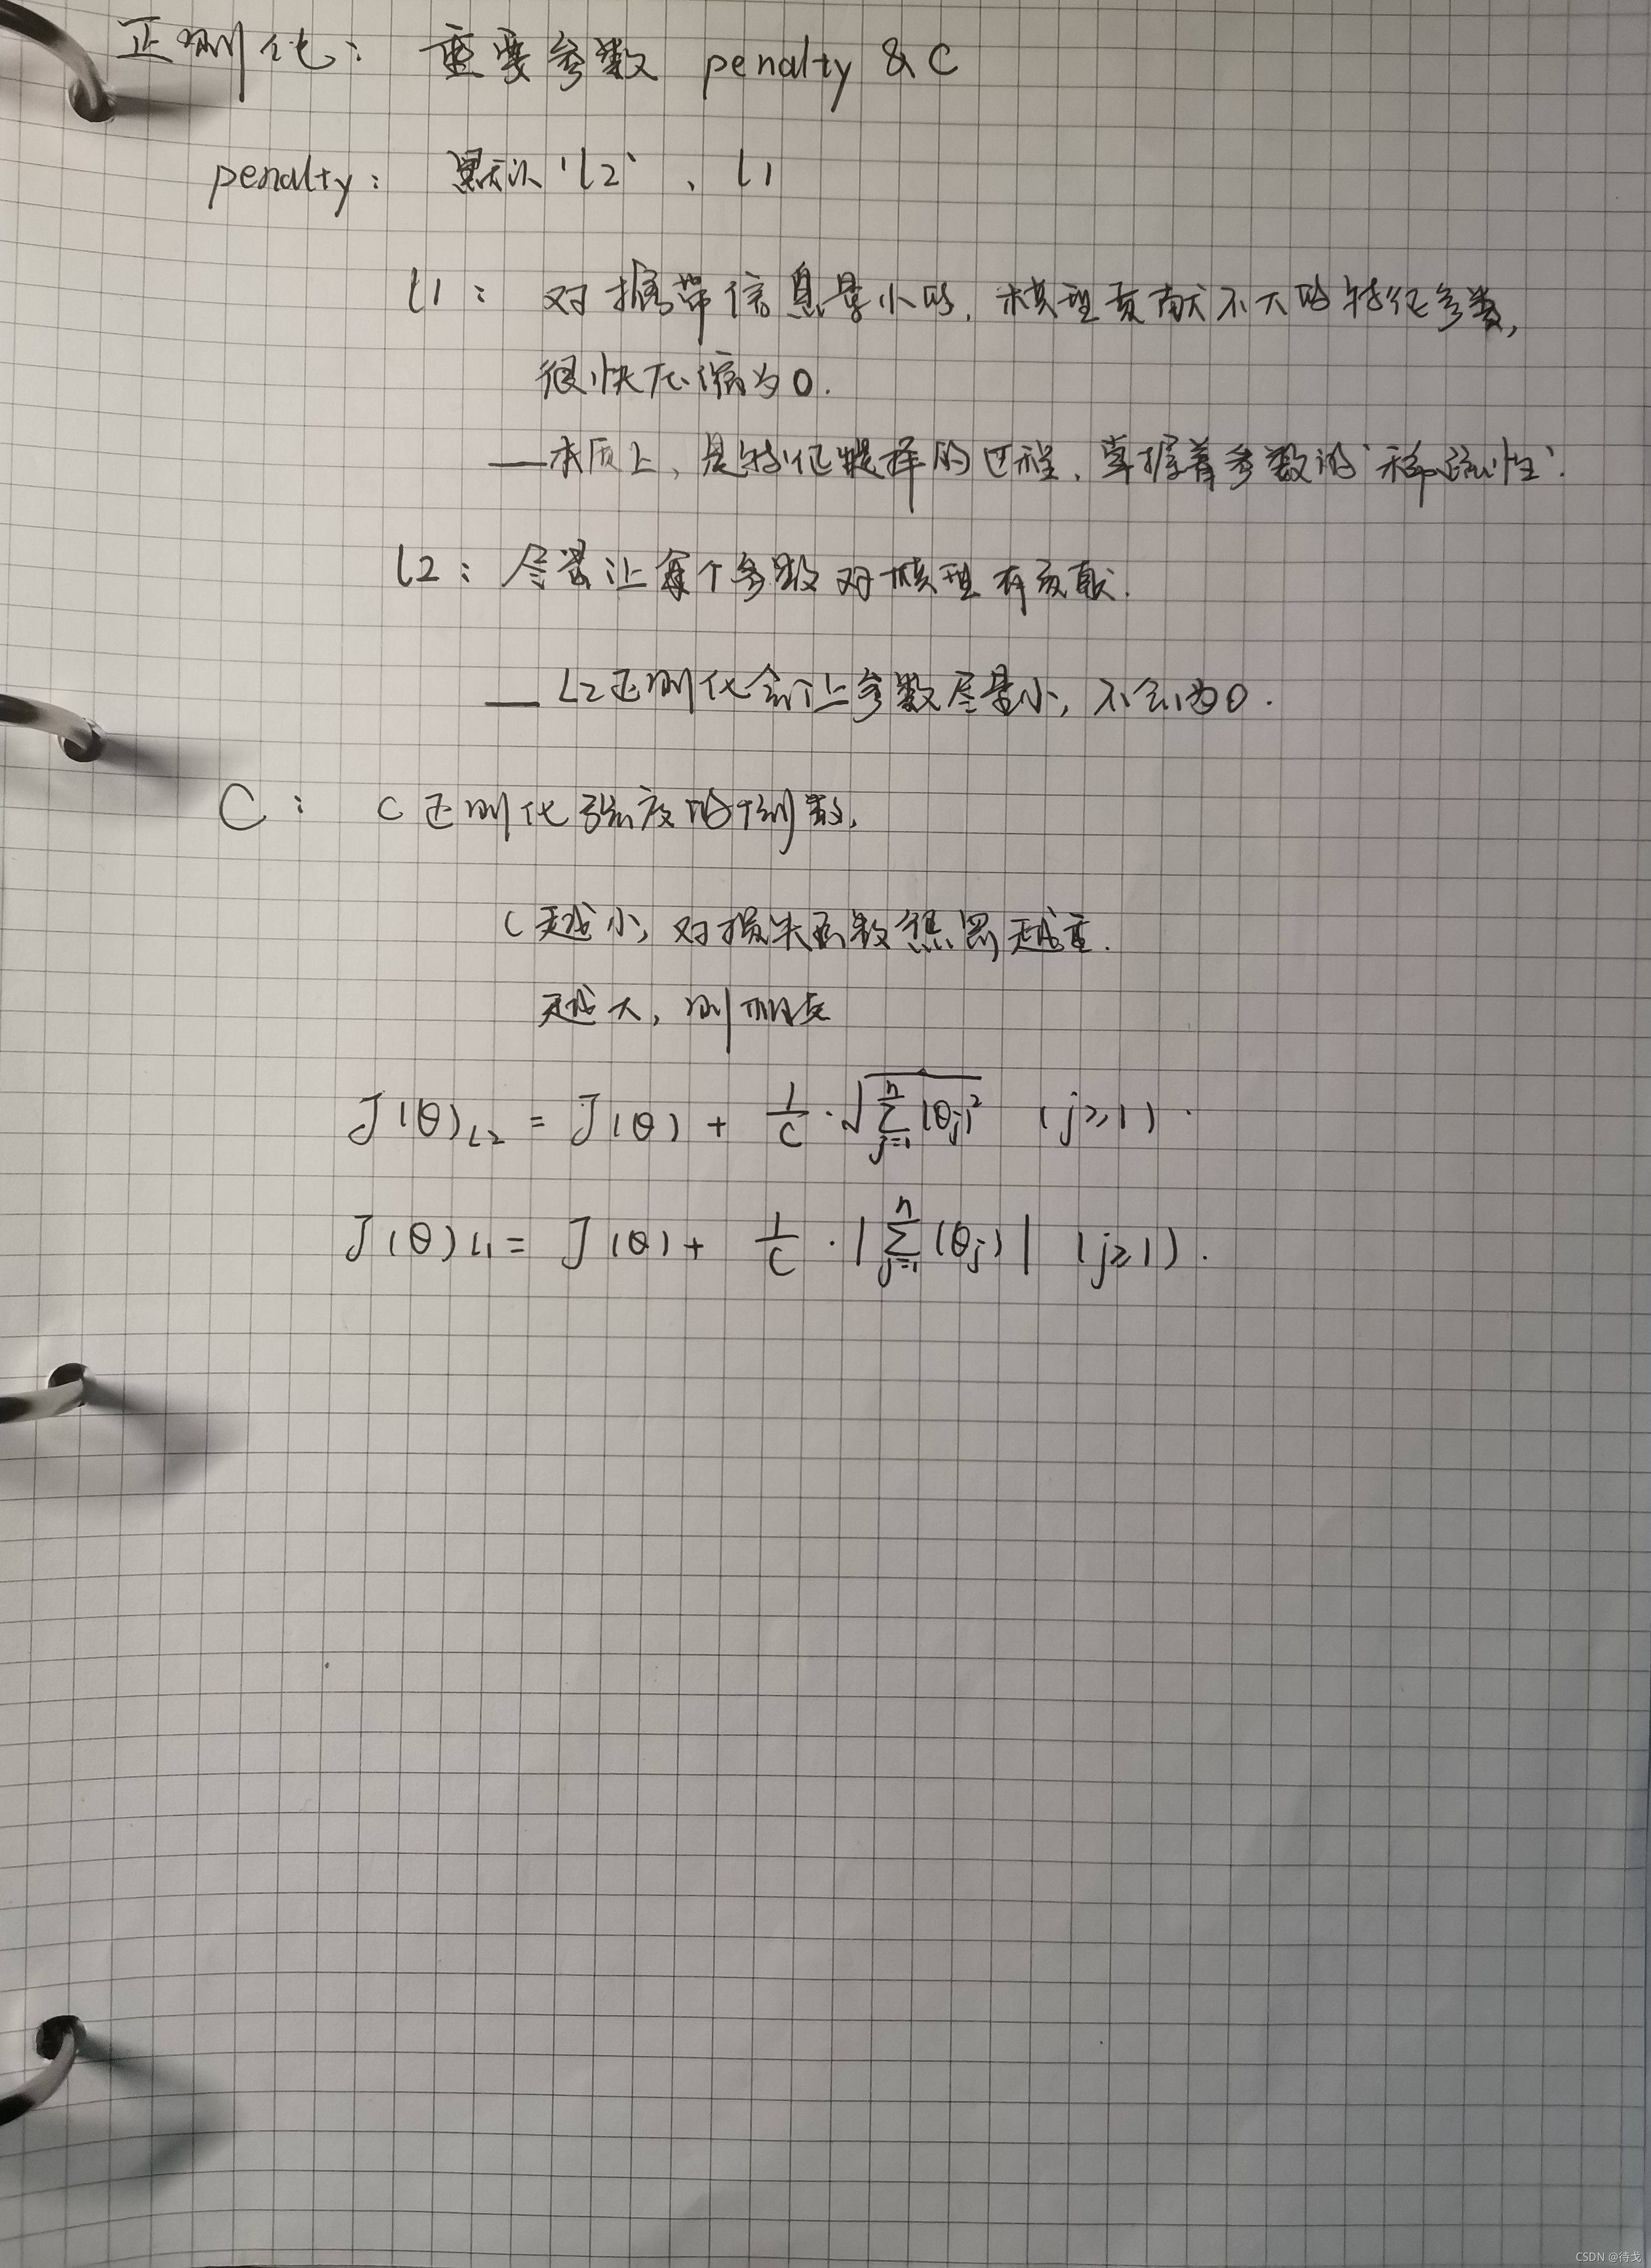 正则化： 重要参数 penalty & C
penalty： 默认 'l2' 、 l1
l1： 对携带信息量小的，模型贡献不大的特征参数，
很快压缩为0.
——本质上，是特征选择的过程，掌握着参数的‘稀疏性’.
l2：尽量让每个参数对模型有贡献.
—— L2正则化会让参数尽量小，不会为0.
C： C正则化强度的倒数，
C越小，对损失函数惩罚越重.
越大，则相反
J(θ)L2 = J(θ) + 1/C · √(∑_{j=1}^{n}(θj)²) (j≥1).
J(θ)L1 = J(θ) + 1/C · |∑_{j=1}^{n}(θj)| (j≥1).
CSDN @待戈